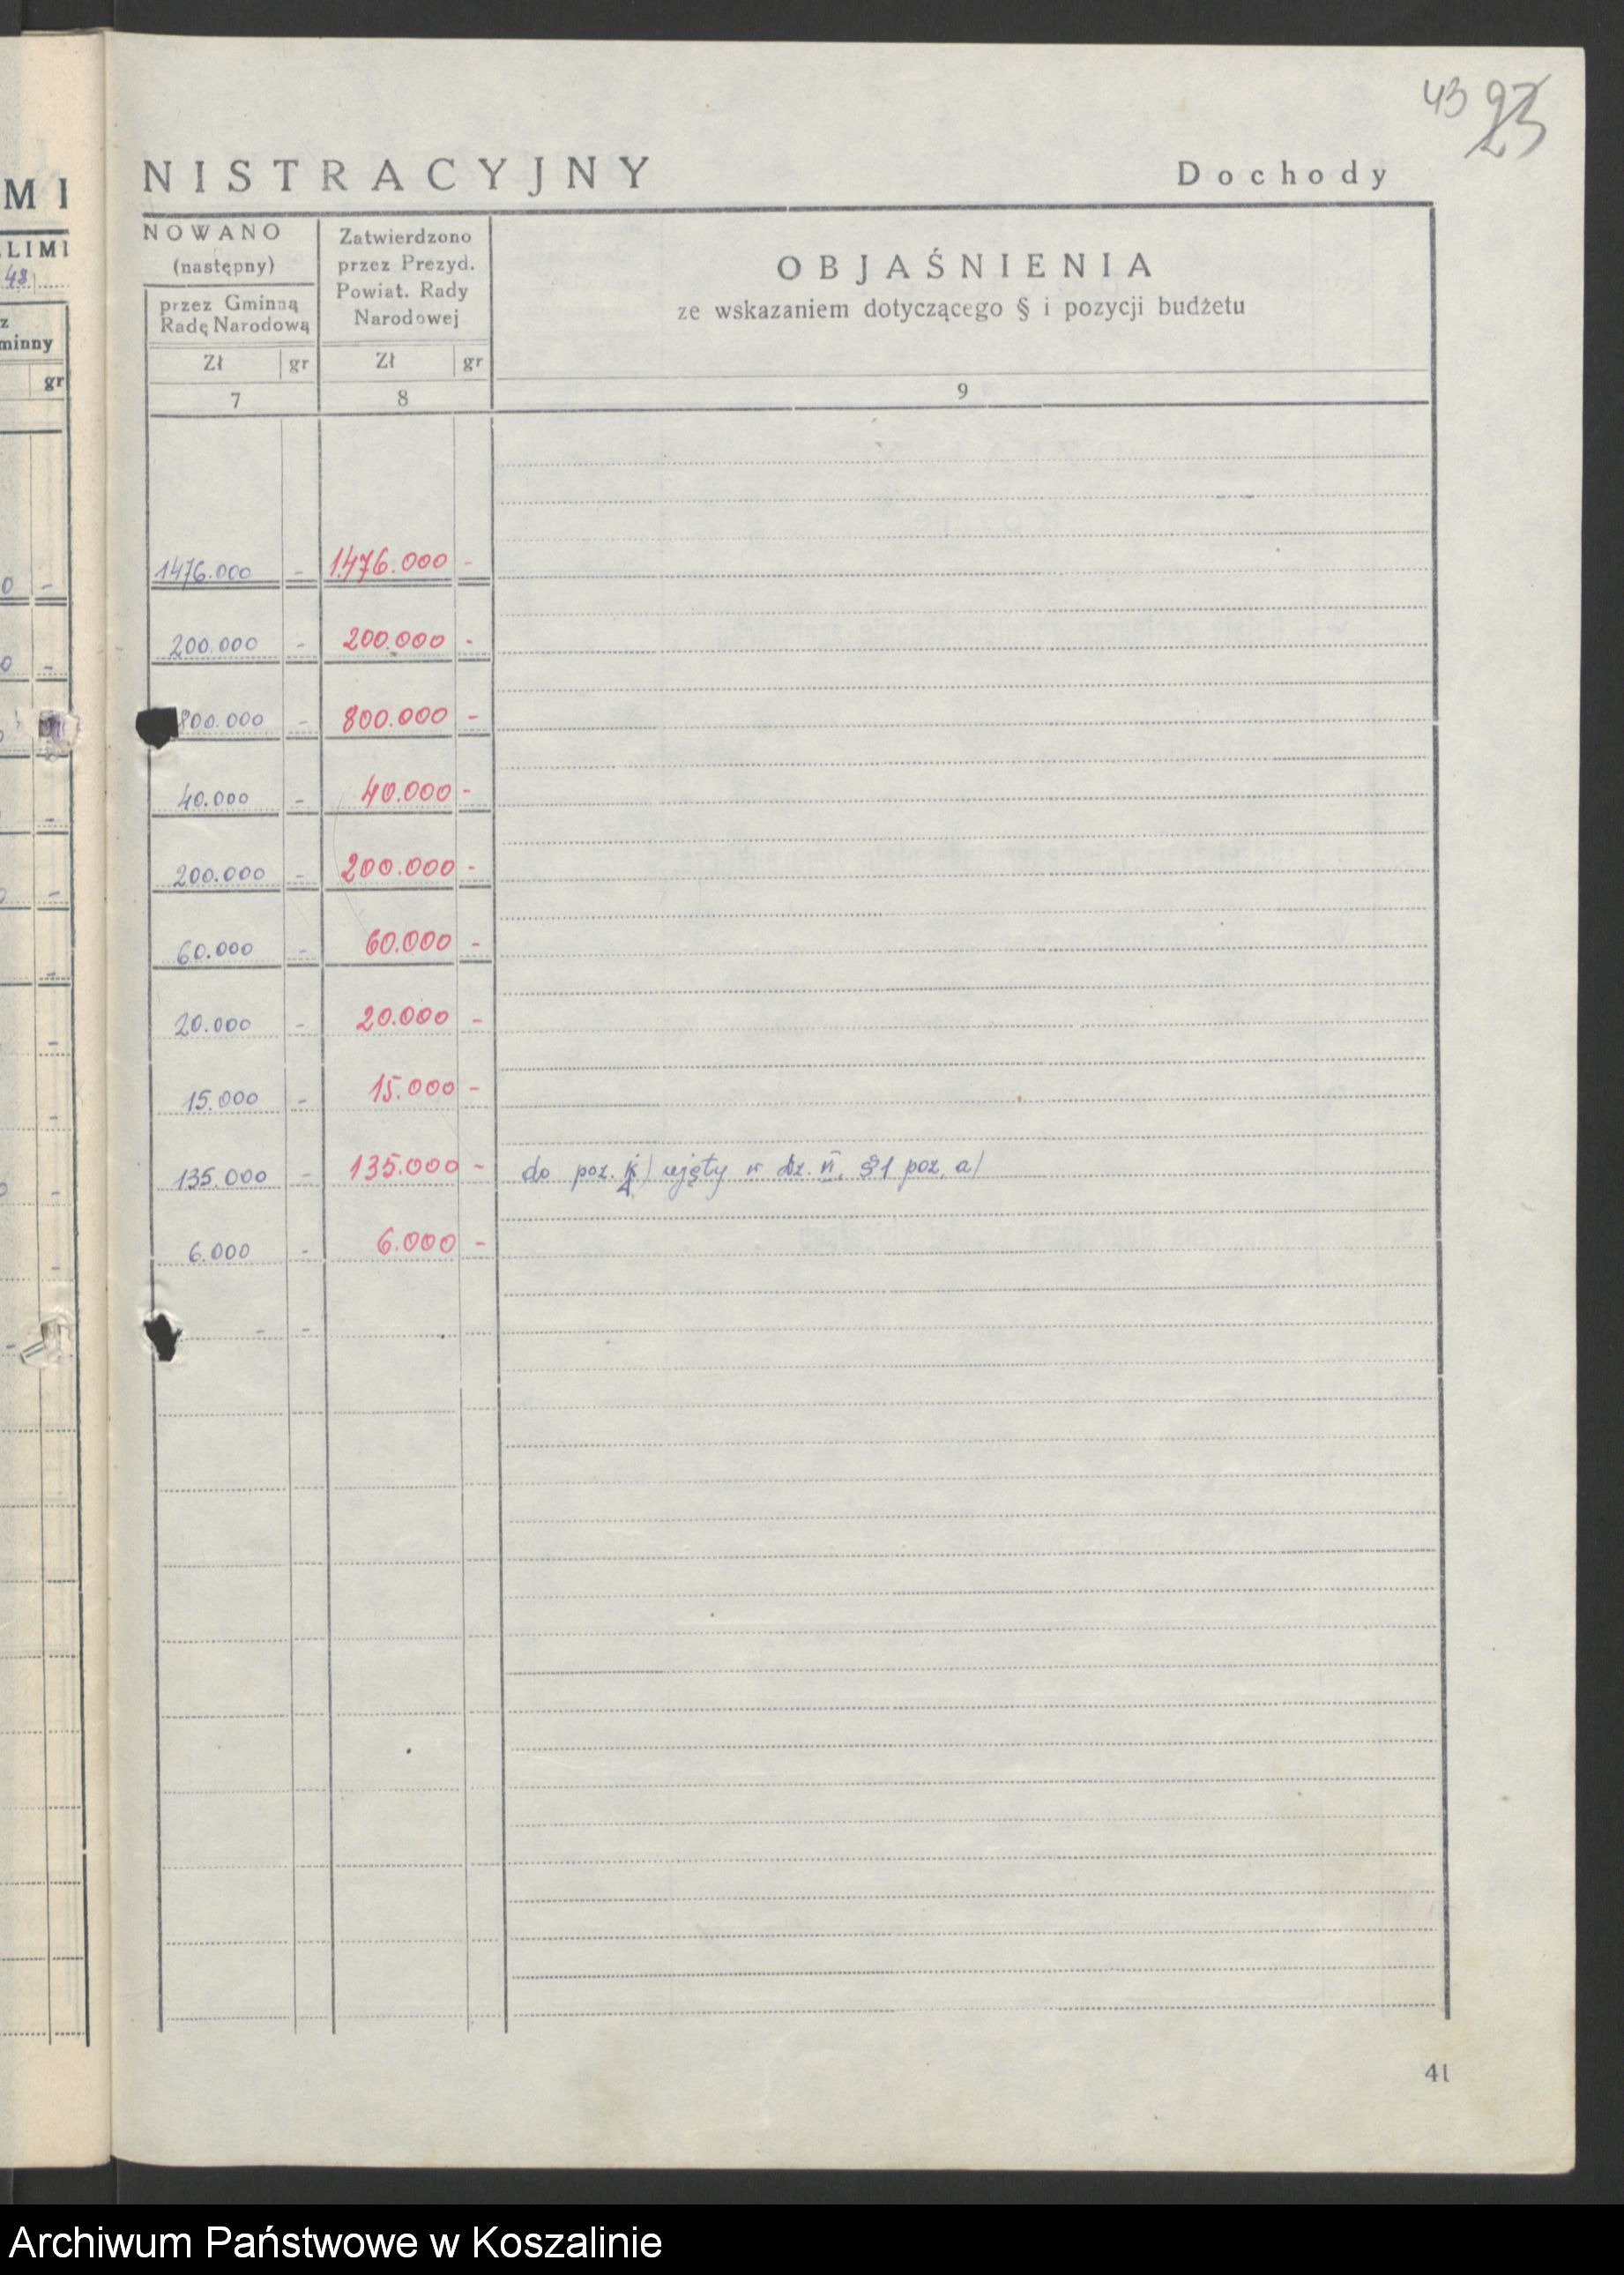 43 23
MI
NISTRACYJNY Dochody
LIMI
48
z
minny
gr
NOWANO
(następny)
przez Gminną
Radę Narodową
Zł gr
7
Zatwierdzono
przez Prezyd.
Powiat. Rady
Narodowej
Zł gr
8
OBJAŚNIENIA
ze wskazaniem dotyczącego § i pozycji budżetu
9
0 - 1476.000 - 1.476.000 -
0 - 200.000 - 200.000 -
800.000 - 800.000 -
- 40.000 - 40.000 -
- 200.000 - 200.000 -
- 60.000 - 60.000 -
- 20.000 - 20.000 -
- 15.000 - 15.000 -
- 135.000 - 135.000 - do poz. ujęty w dz. VI, §1 poz. a/
- 6.000 - 6.000 -
- - -
41
Archiwum Państwowe w Koszalinie